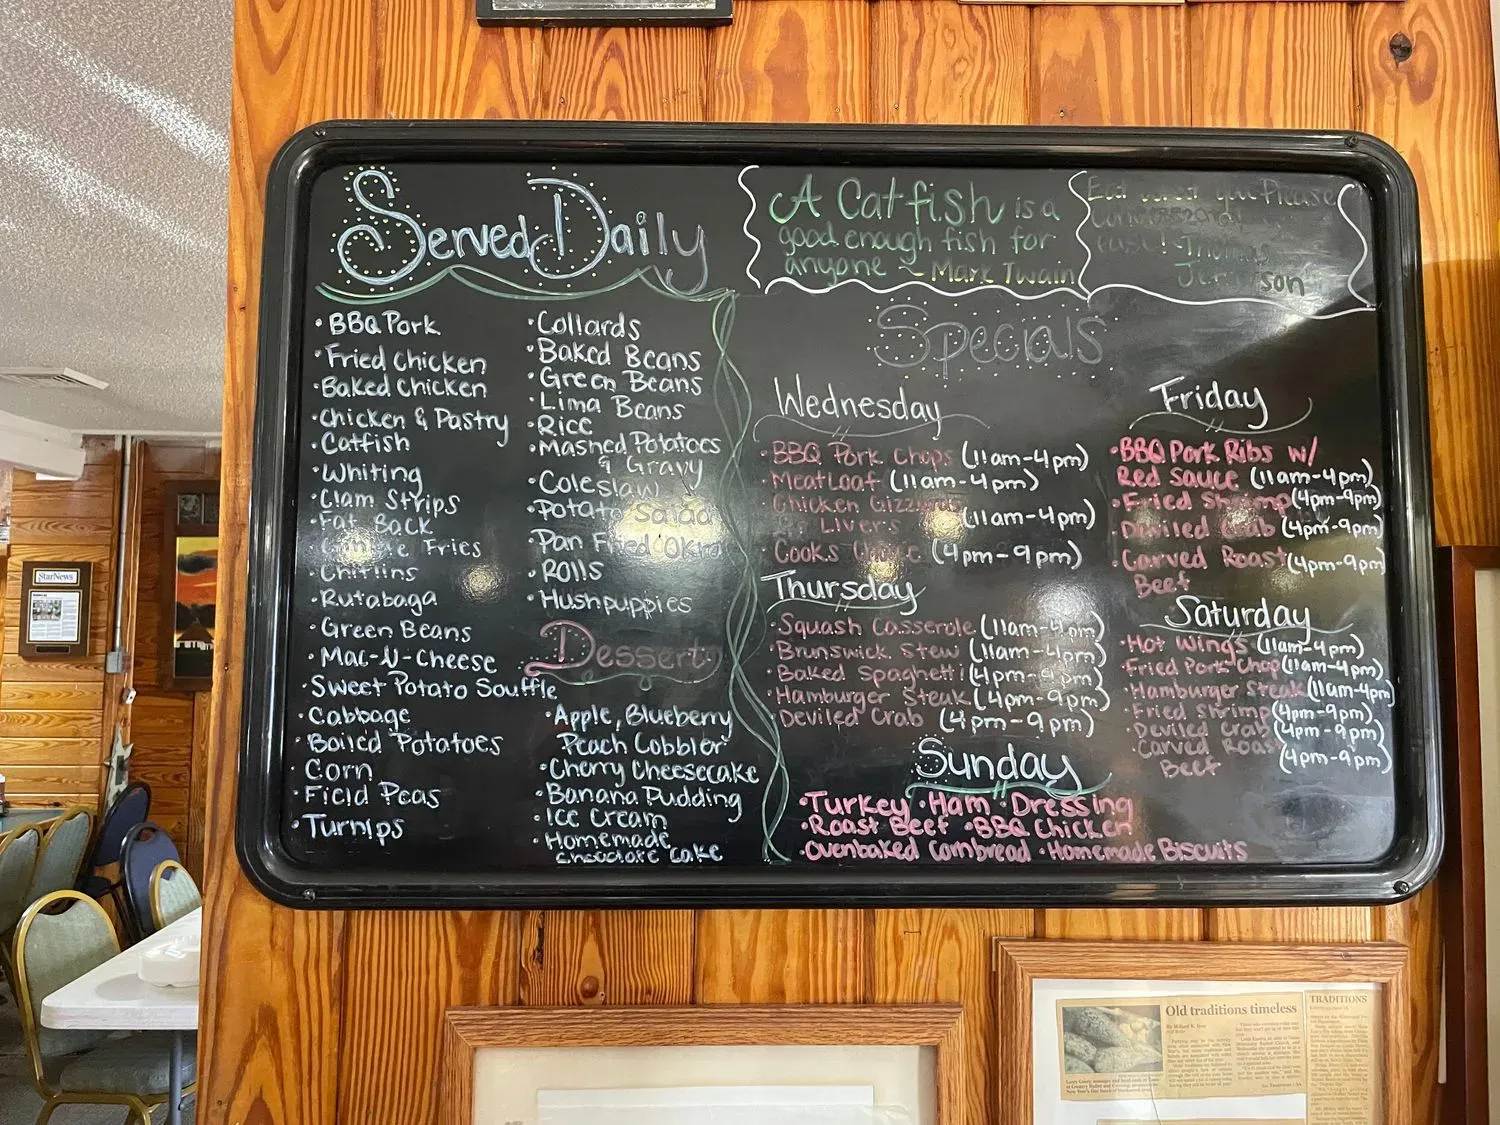 Served Daily
• BBQ Pork
• Fried Chicken
• Baked Chicken
• Chicken & Pastry
• Catfish
• Whiting
• Clam Strips
• Fat Back
Fries
• Chitlins
• Rutabaga
• Green Beans
• Mac-N-Cheese
• Sweet Potato Souffle
• Cabbage
• Boiled Potatoes
• Corn
• Field Peas
• Turnips
• Collards
• Baked Beans
• Green Beans
• Lima Beans
• Rice
• Mashed Potatoes
& Gravy
• Coleslaw
• Potato Salad
• Pan Fried Okra
• Rolls
• Hushpuppies
Desserts
• Apple, Blueberry
Peach Cobbler
• Cherry Cheesecake
• Banana Pudding
• Ice Cream
• Homemade
Chocolate Cake
A Catfish is a
good enough fish for
anyone ~ Mark Twain
Eat what you Please
Thomas
Jefferson
Specials
Wednesday
• BBQ Pork Chops (11am-4pm)
• Meatloaf (11am-4pm)
• Chicken Gizzards
or Livers (11am-4pm)
• Cooks Choice (4pm-9pm)
Thursday
• Squash Casserole (11am-4pm)
• Brunswick Stew (11am-4pm)
• Baked Spaghetti (4pm-9pm)
• Hamburger Steak (4pm-9pm)
• Deviled Crab (4pm-9pm)
Friday
• BBQ Pork Ribs w/
Red Sauce (11am-4pm)
• Fried Shrimp (4pm-9pm)
• Deviled Crab (4pm-9pm)
• Carved Roast (4pm-9pm)
Beef
Saturday
• Hot Wings (11am-4pm)
• Fried Pork Chop (11am-4pm)
• Hamburger Steak (11am-4pm)
• Fried Shrimp (4pm-9pm)
• Deviled Crab (4pm-9pm)
• Carved Roast
Beef (4pm-9pm)
Sunday
• Turkey • Ham • Dressing
• Roast Beef • BBQ Chicken
• Ovenbaked Cornbread • Homemade Biscuits
StarNews
Old traditions timeless
TRADITIONS